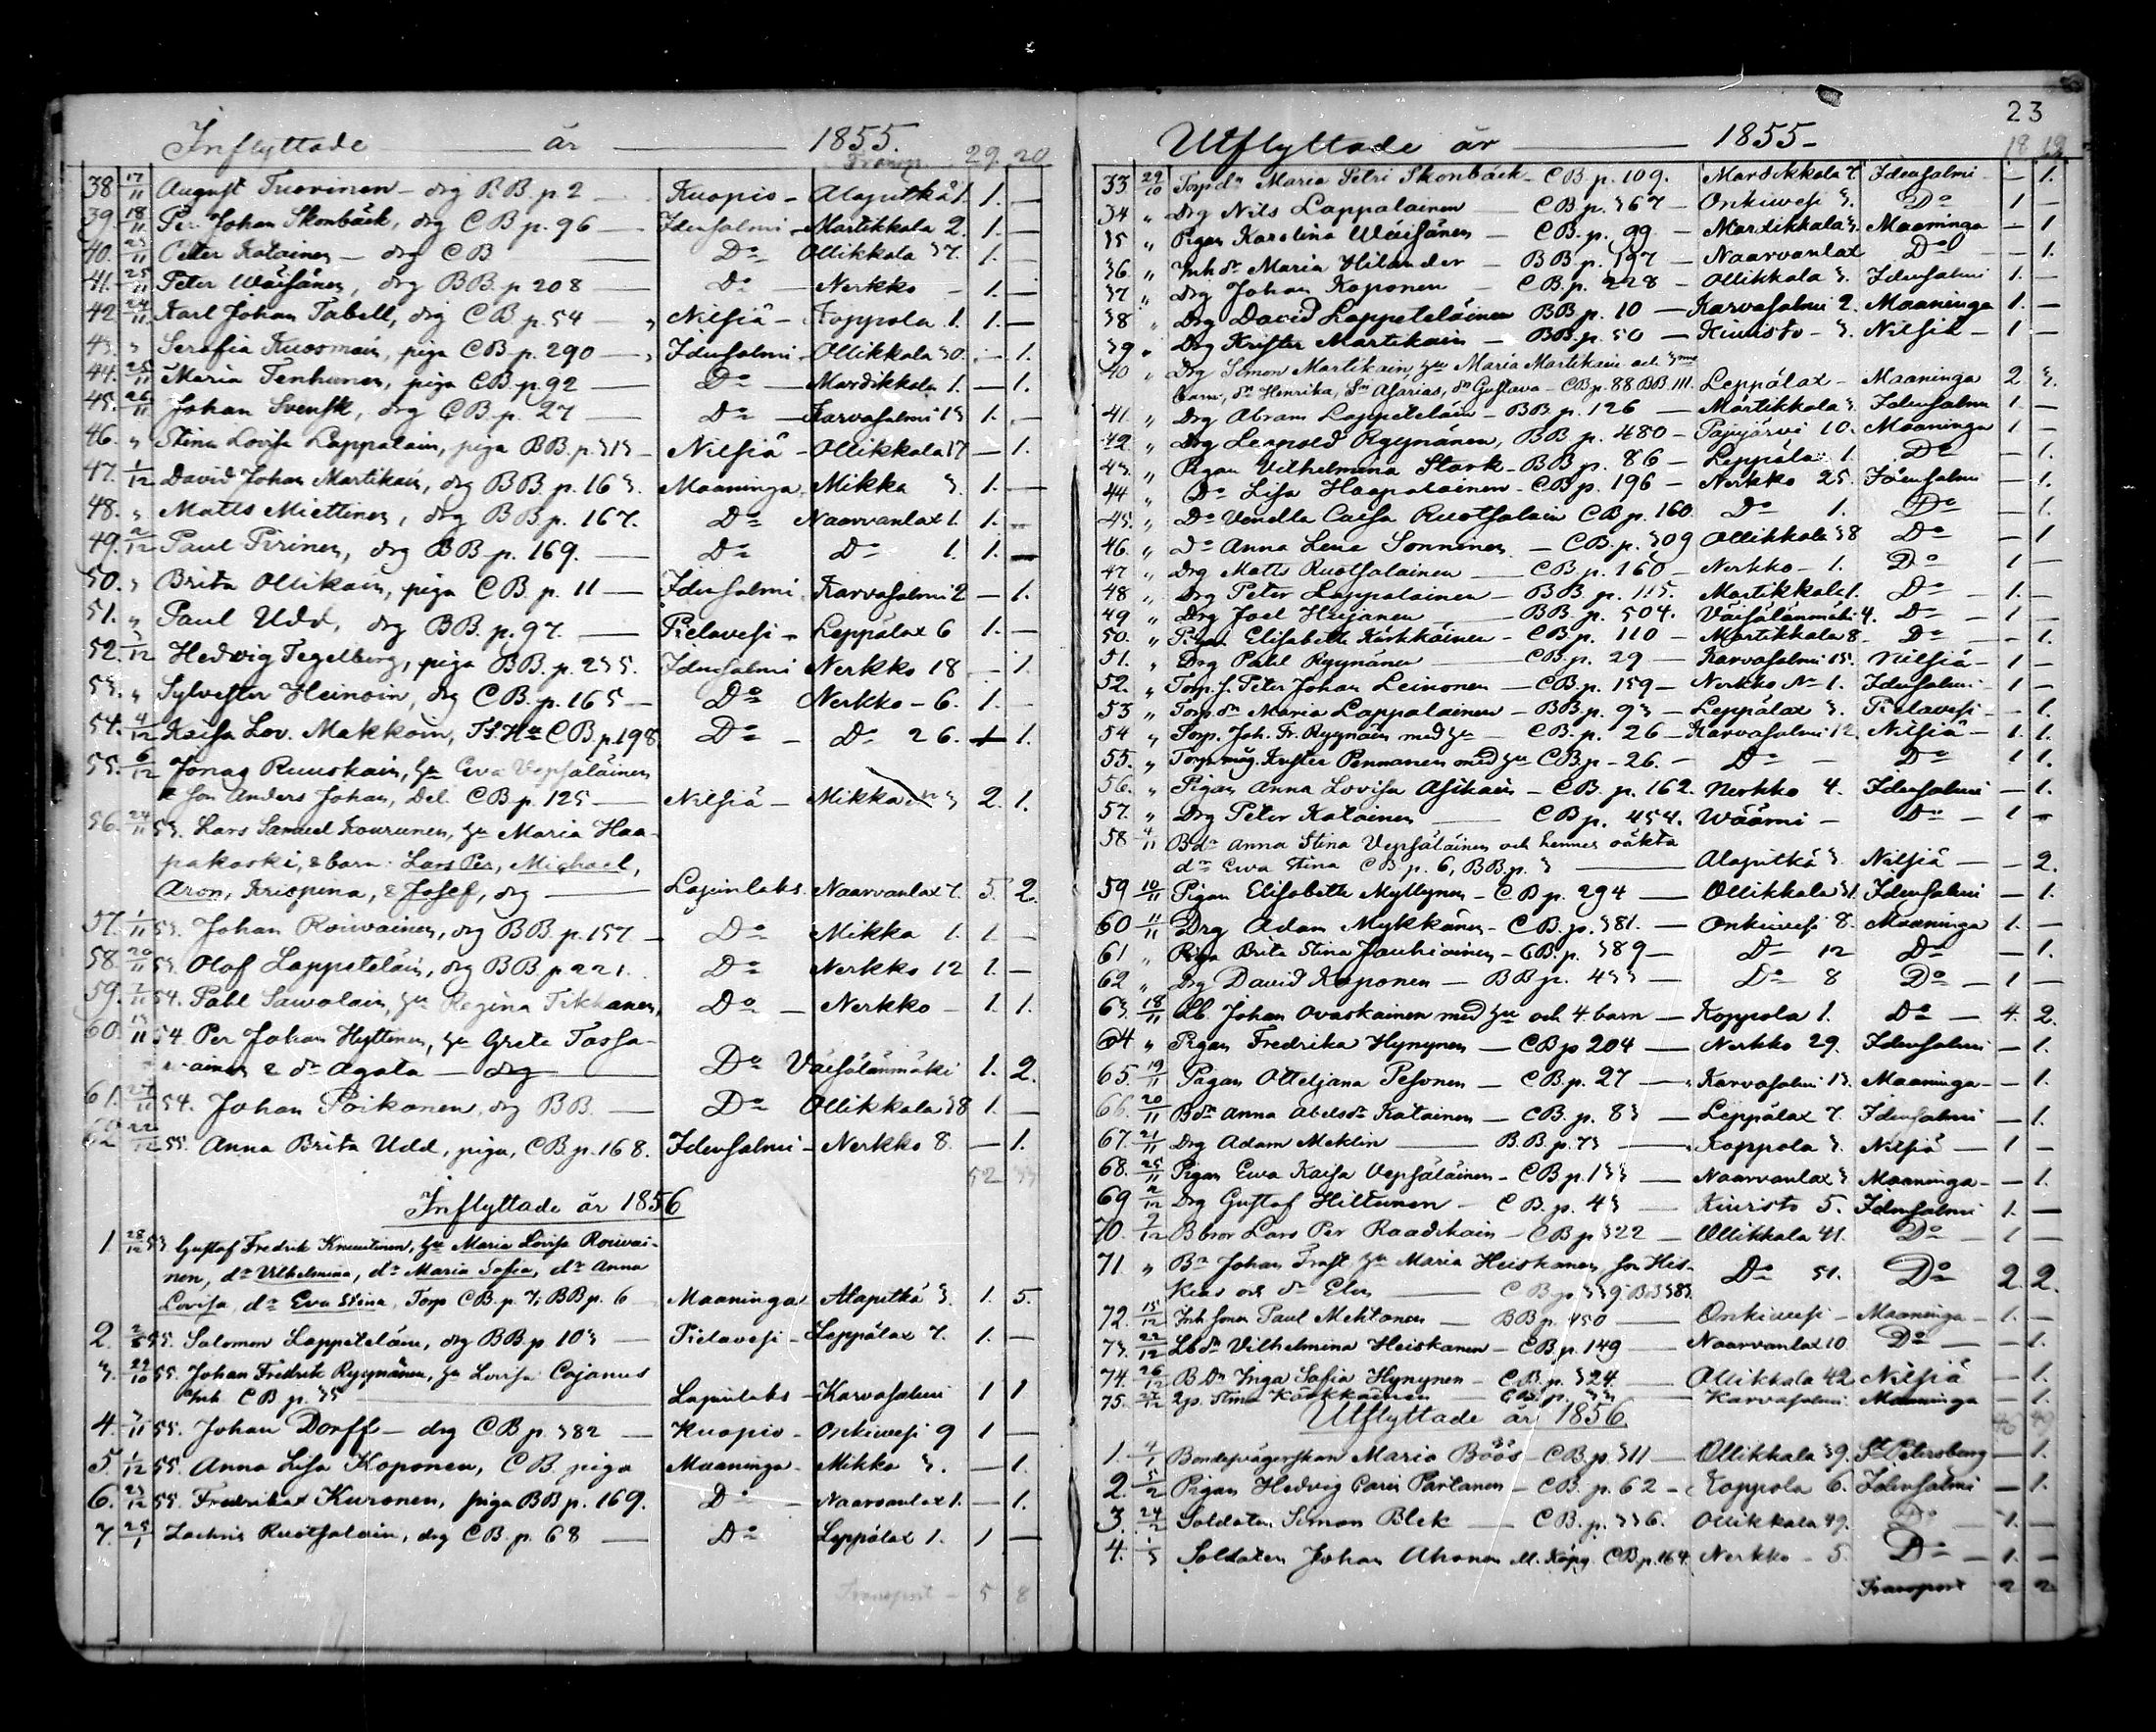 23
Inflyttade år 1855.
Transp. 29. 20
38 17/11 August Tuovinen - drg BB. p. 2 Kuopio - Alapitkä 1. 1. —
39. 18/11 Per Johan Skonbäck, drg CB p. 96 — Idensalmi - Martikkala 2. 1. —
40. 23/11 Peter Katainen - drg CB — Do Ollikkala 37. 1. —
41. 25/11 Peter Wäisänen, drg BB. p 208 — Do - Nerkko - 1. —
42. 24/11 Karl Johan Tabell, drg CB p. 54 — Nilsiä - Koppola 1. 1. —
43. " Serafia Kuosmain, piga CB p. 290 — Idensalmi - Ollikkala 30. — 1.
44. 25/11 Maria Tenhunen, piga CB p. 92 — Do - Mardikkala 1. — 1.
45. 26/11 Johan Svensk, drg CB p. 27 — Do - Karvasalmi 13 1. —
46. " Stina Lovisa Lappalain, piga BB. p. 313 - Nilsiä - Ollikkala 17 — 1.
47. 1/12 David Johan Martikain, drg BB. p. 163. Maaninga. Mikka 3. 1. —
48. " Matts Miettinen, drg BB p. 167. Do Naarvanlax 1. 1. —
49. 2/12 Paul Pirinen, drg BB p. 169. — Do Do 1. 1. —
50. " Brita Ollikain, piga CB p. 11 — Idensalmi. Karvasalmi 2 — 1.
51. " Paul Udd, drg BB. p. 97. — Pielavesi - Leppälax 6 1. —
52. 3/12 Hedvig Tegelberg, piga BB. p. 235. Idensalmi Nerkko 18 — 1.
53. " Sylvester Heinoin, drg CB. p. 165 — Do Nerkko - 6. 1. —
54. 4/12 Kaisa Lov. Makkoin, CB p. 198. Do - Do 26. 1.
55. 6/12 Jonas Ruuskain, hu Eva Vepsäläinen
& son Anders Johan, Del. CB p. 125 — Nilsiä - Mikka 3 2. 1.
56. 24/11 53. Lars Samuel Kourunen, hu Maria Haa-
pakoski, & barn: Lars Per, Michael,
Aron, Krispina, & Josef, drg — Lapinlaks. Naarvanlax 7. 5. 2.
57. 1/11 53. Johan Roivainen, drg BB. p. 157. - Do Mikka 1. 1. —
58. 20/11 53. Olof Lappetelain, drg BB. p. 221. Do Nerkko 12 1. —
59. 7/11 54. Pahl Sawolain, hu Regina Tikkanen, Do - Nerkko - 1. 1.
60. 13/11 54. Per Johan Hyttinen, hu Greta Tossa-
vainen & dr Agata — drg — Do Väisälänmäki 1. 2.
61. 54. Johan Poikonen, drg BB. — Do Ollikkala 38 1. —
62 22/12 55. Anna Brita Udd, piga, CB p. 168. Idensalmi - Nerkko 8. — 1.
52 33
Inflyttade år 1856
1. 28/12 53 Gustaf Fredrik Knuutinen, hu Maria Lovisa Roivai-
nen, dr Vilhelmina, dr Maria Sofia, dr Anna
Lovisa, dr Eva Stina, Torp CB p. 7, BB p. 6 Maaninga Alapitkä 3. 1. 5.
2. 55. Salomon Lappetelain, drg BB p. 103 — Pielavesi - Leppälax 7. 1. —
3. 29/10 55. Johan Fredrik Ryynänen, hu Lovisa Cajanus
Inh CB p. 35 — Lapinlaks - Karvasalmi 1 1
4. 3/11 55. Johan Dorff - drg CB p. 382 — Kuopio - Onkivesi 9 1 —
5. 1/12 55. Anna Lisa Koponen, CB piga Maaninga - Mikka 3. — 1.
6. 23/12 55. Fredrika Kuronen, piga BB p. 169. Do - Naarvanlax 1. — 1.
7. 25/1 Zachris Ruotsalain, drg CB. p. 68 — Do Leppälax 1. 1 —
Transport - 5 8
Utflyttade år 1855 -
18 19
33. 29/10 Torp dr Maria Petri Skonbäck - CB p. 109. Mardikkala 7. Idensalmi - — 1.
34 " Drg Nils Lappalainen — CB p. 367 - Onkivesi 3. Do 1 —
35 " Pigan Karolina Wäisänen - CB. p. 99 - Mardikkala 3. Maaninga — 1
36. " Inh dr Maria Hilander - BB p. 597 - Naarvanlax Do — 1.
37 " Drg Johan Koponen - CB. p. 228 - Ollikkala 3. Idensalmi 1. —
38 " Drg David Lappeteläinen BB p. 10 - Karvasalmi 2. Maaninga 1. —
39 " Drg Krister Martikain - BB p. 50 - Kiuristo - 3. Nilsiä - 1 —
40 " Drg Simon Martikain, hu Maria Martikain och 3nne
barn, dr Henrika, Sn Asarias, dr Gustava - CB p. 88 BB. 111. Leppälax - Maaninga 2 3.
41. " Drg Abram Lappetelain - BB p. 126 - Martikkala 3. Idensalmi 1. —
42. " Drg Leopold Ryynänen, BB. p. 480 - Pajujärvi 10. Maaninga 1 —
43 " Pigan Vilhelmina Stark - BB p. 86 - Leppälax 1. Do — 1.
44 " Do Lisa Haapalainen - CB p. 196 - Nerkko 25. Idensalmi — 1.
45. " Do Vendla Caisa Ruotsalain CB p. 160 Do 1. Do — 1.
46 " Do Anna Lena Sonninen - CB. p. 309 Ollikkala 38 Do — 1
47 " Drg Matts Ruotsalainen — CB. p. 160 - Nerkko - 1. Do 1 —
48 " Drg Peter Lappalainen - BB p. 115. Martikkala 1. Do — 1. —
49 " Drg Joel Heijanen — BB p. 504. Väisälänmäki 4. Do - 1 —
50. " Pigan Elisabeth Kärkkäinen - CB p. 110 - Martikkala 8 - Do — 1.
51. " Drg Pahl Ryynänen — CB. p. 29 - Karvasalmi 15. Nilsiä - 1 —
52. " Torp. s. Peter Johan Leinonen - CB. p. 159 - Nerkko No 1. Idensalmi - 1 —
53 " Torp. dr Maria Lappalainen - BB p. 93 - Leppälax 3. Pielavesi - — 1.
54 " Torp. Joh. Fr. Ryynäin med hu - CB. p. 26 - Karvasalmi 12. Nilsiä - 1. 1.
55. " Torp. måg. Krister Pennanen med hu CB p - 26. - Do - Do 1 1.
56. " Pigan Anna Lovisa Asikain - CB p. 162. Nerkko 4. Idensalmi — 1.
57. " Drg Peter Katainen — CB p. 454. Wäärni - Do - 1 —
58 4/11 Bdr Anna Stina Vepsäläinen och hennes oäkta
dr Ewa Stina CB p. 6, BB p. 3 — Alapitkä 3. Nilsiä - — 2.
59 10/11 Pigan Elisabeth Myllynen - CB p. 294 — Ollikkala 31. Idensalmi — 1.
60 11/11 Drg Adam Mykkänen - CB. p. 381. - Onkivesi 8. Maaninga 1. —
61 " Piga Brita Stina Jauhiainen - CB. p. 389 - Do 12 Do — 1.
62 " Drg David Koponen - BB p. 433 - Do 8 Do — 1 —
63 18/11 Lb. Johan Ovaskainen med hu och 4. barn - Koppola 1. Do — 4. 2.
64 " Pigan Fredrika Hynynen — CB p 204 — Nerkko 29. Idensalmi — 1.
65. 19/11 Pagan Otteljana Pesonen - CB. p. 27 — Karvasalmi 13. Maaninga - — 1.
66. 20/11 Bdr Anna Abelsdr Katainen - CB. p. 83 — Leppälax 7. Idensalmi — 1.
67. 21/11 Drg Adam Meklin — B.B p. 73 — Koppola 3. Nilsiä — 1 —
68. 25/11 Pigan Ewa Kaisa Vepsäläinen - CB p. 133 — Naarvanlax 3. Maaninga - — 1.
69 2/12 Drg Gustaf Hiltunen - CB. p. 43 — Kiuristo 5. Idensalmi 1. —
70. 9/12 B bror Lars Per Raadikain - CB p 322 - Ollikkala 41. Do — 1 —
71. " Bn Johan hu Maria Heiskanen, son His-
Kias och dr Elin — CB p 339 Do 51. Do 2. 2.
72. 15/12 Inh sonen Paul Mehtonen — BB p. 450 — Onkivesi - Maaninga - 1. —
73. 22/12 Lb dr Vilhelmina Heiskanen - CB p. 149 — Naarvanlax 10. Do — 1.
74. 26/12 B Dr Inga Sofia Hynynen - CB p. 324 — Ollikkala 42 Nilsiä — 1.
75. 27/12 Stina Kärkkäinen CB p. 33 — Karvasalmi. Maaninga — 1.
Utflyttade år 1856.
46 49
1. Bondesvägerskan Maria Böös - CB. p. 311 — Ollikkala 39. St Petersburg — 1.
2. 5/2 Pigan Hedvig Carin Partanen - CB. p. 62 - Koppola 6. Idensalmi — 1.
3. 24/2 Soldaten Simon Blek — CB. p. 336. Ollikkala 49. Do — 1. —
4. 1/3 Soldaten Johan Ahonen CB p. 164. Nerkko - 5. Do — 1. —
Transport 2 2